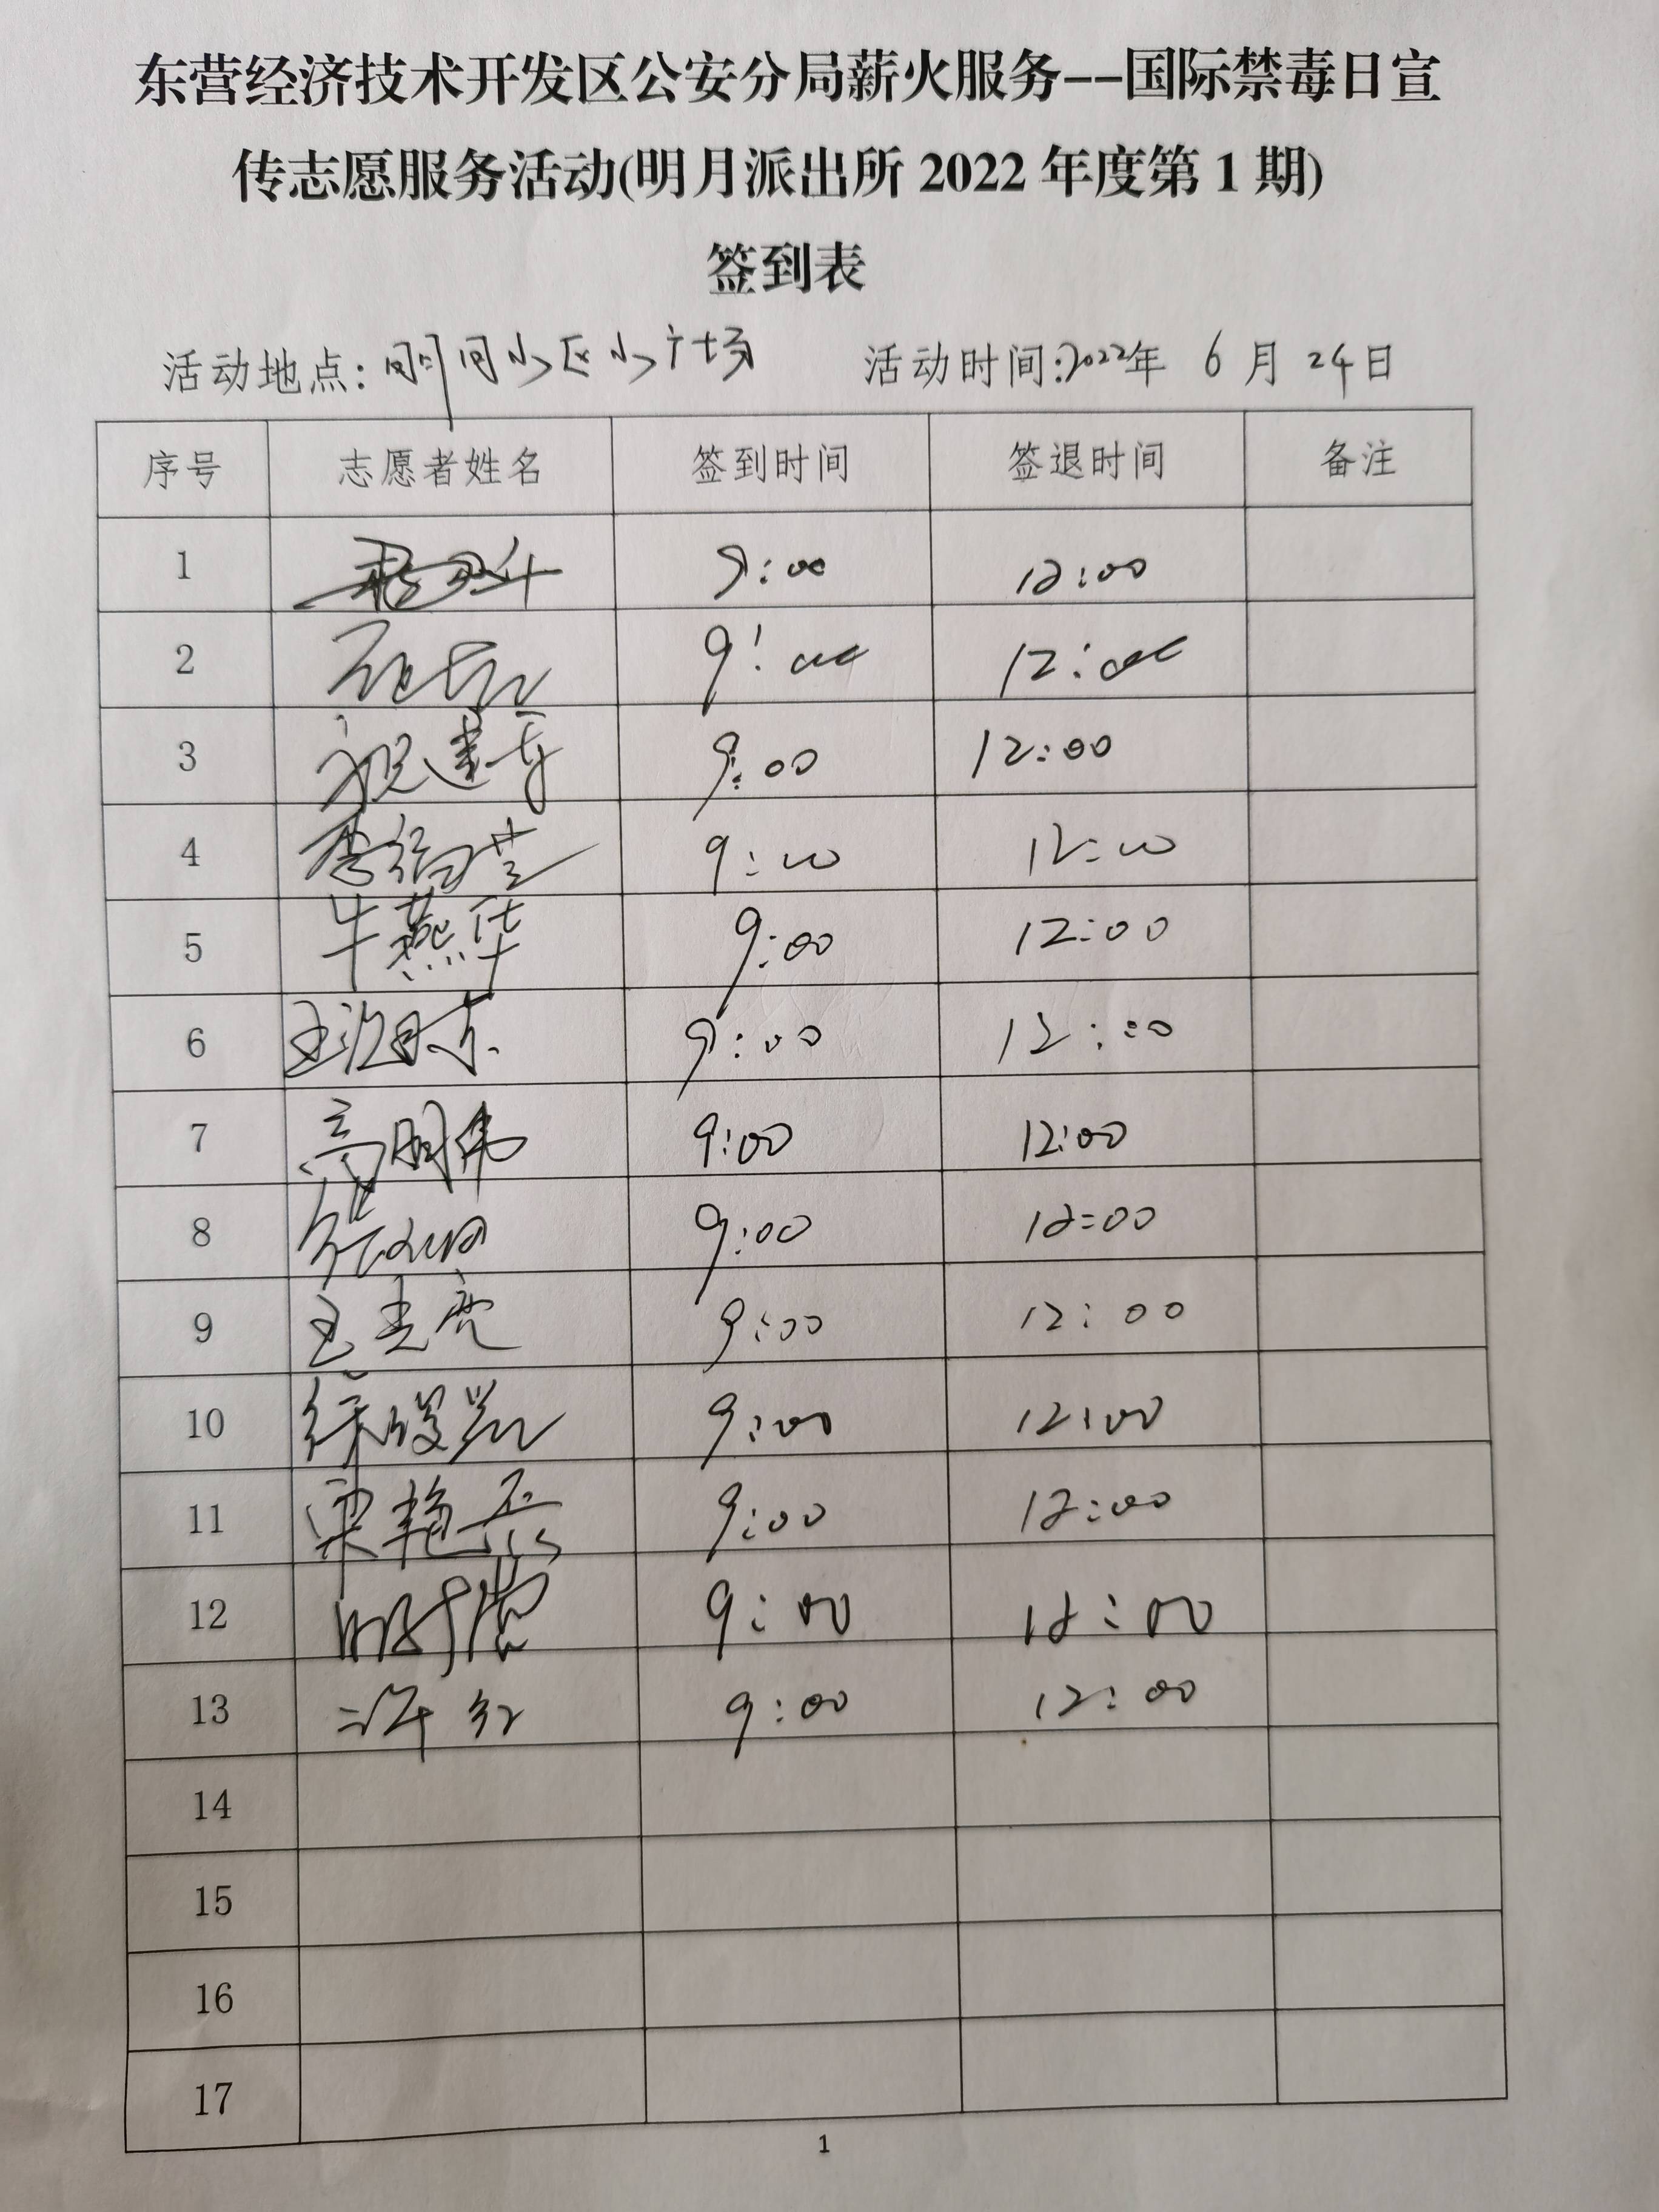 东营经济技术开发区公安分局薪火服务--国际禁毒日宣
传志愿服务活动(明月派出所 2022 年度第 1 期)
签到表
活动地点: 小区小广场 活动时间:2022年 6 月 24日
序号 志愿者姓名 签到时间 签退时间 备注
1 9:00 12:00
2 9:00 12:00
3 祝建 9:00 12:00
4 9:00 12:00
5 牛燕华 9:00 12:00
6 9:00 12:00
7 高明伟 9:00 12:00
8 9:00 12:00
9 王圭亮 9:00 12:00
10 9:00 12:00
11 艳 9:00 12:00
12 9:00 12:00
13 许红 9:00 12:00
14
15
16
17
1